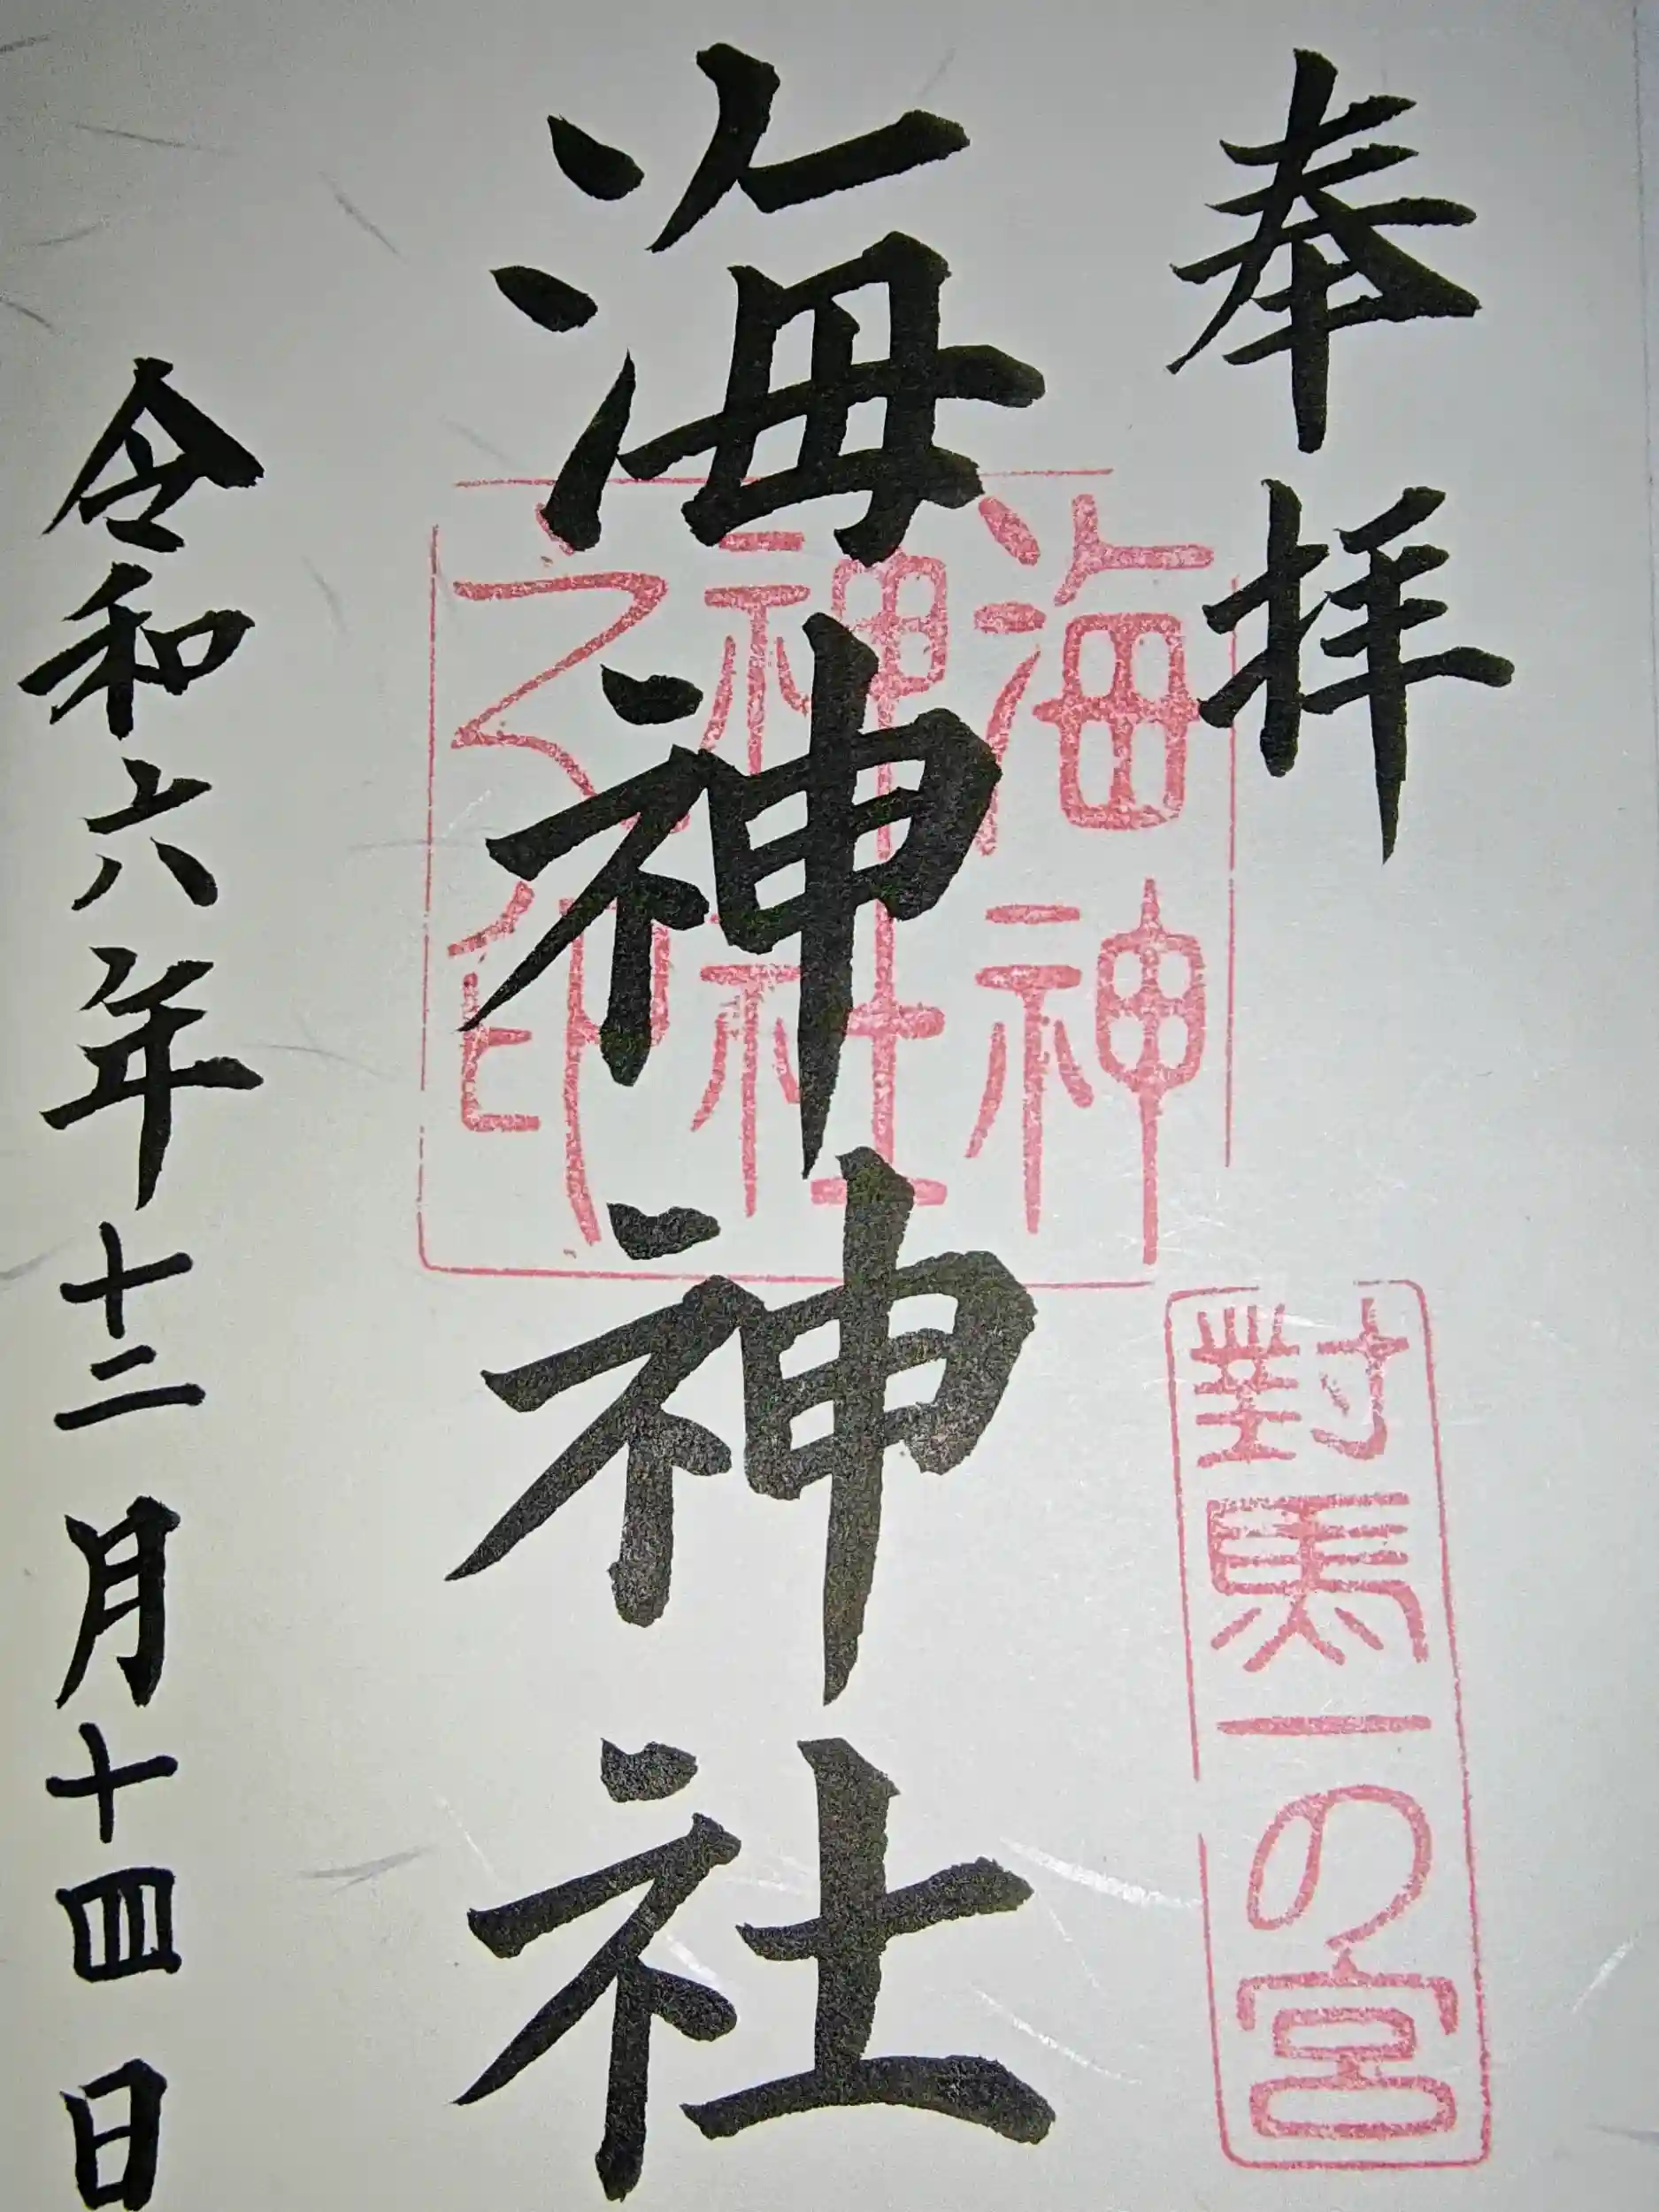 奉拝
對馬一の宮
海神神社
海神
神社
之印
令和六年十二月十四日